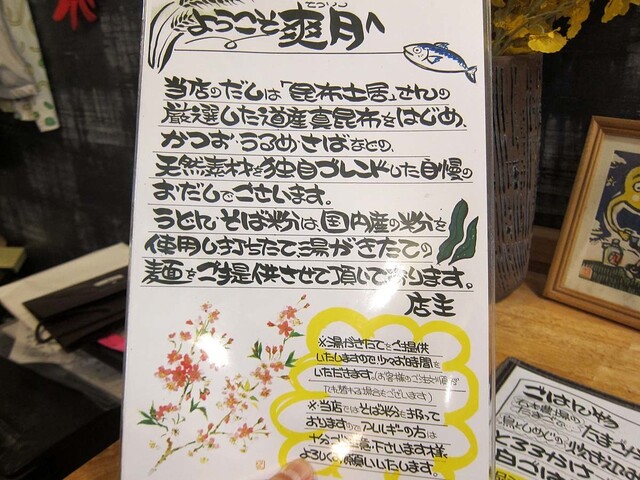 ようこそ爽月へ
当店のだしは「昆布土居」さんの
厳選した道産真昆布をはじめ、
かつお・うるめ・さばなどの、
天然素材を独自ブレンドした自慢の
おだしでございます。
うどん、そば粉は、国内産の粉を
使用し、打ちたて、湯がきたての
麺をご提供させて頂しております。
店主
※湯がきたてをご提供
いたしますので少々お時間を
いただきます。(お客様のご注文順が
入れ替わる場合もございます)
※当店ではそば粉を扱って
おりますのでアレルギーの方は
十分ご注意下さいます様
よろしくお願いいたします。
ごはんや
たまご
とろろかけ
白ごはん